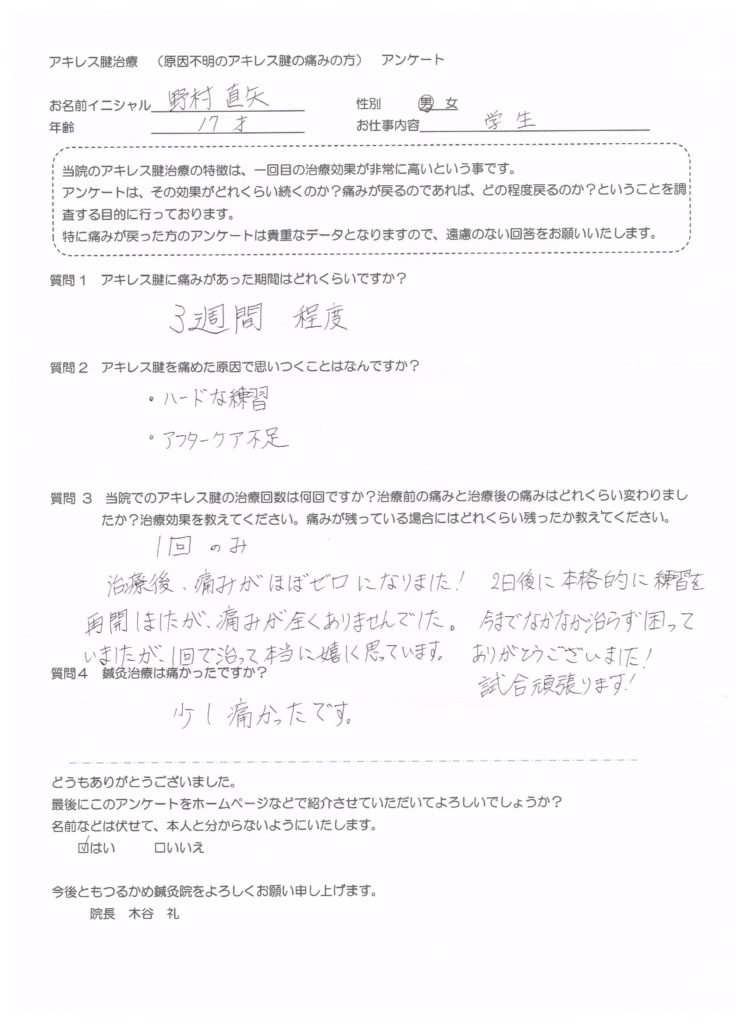 アキレス腱治療　（原因不明のアキレス腱の痛みの方）　アンケート
お名前イニシャル 野村 直矢　性別　男 女
年齢　17才　お仕事内容　学生
当院のアキレス腱治療の特徴は、一回目の治療効果が非常に高いという事です。
アンケートは、その効果がどれくらい続くのか？痛みが戻るのであれば、どの程度戻るのか？ということを調
査する目的に行っております。
特に痛みが戻った方のアンケートは貴重なデータとなりますので、遠慮のない回答をお願いいたします。
質問１　アキレス腱に痛みがあった期間はどれくらいですか？
3週間　程度
質問２　アキレス腱を痛めた原因で思いつくことはなんですか？
・ハードな練習
・アフターケア不足
質問 ３　当院でのアキレス腱の治療回数は何回ですか？治療前の痛みと治療後の痛みはどれくらい変わりまし
たか？治療効果を教えてください。痛みが残っている場合にはどれくらい残ったか教えてください。
1回 のみ
治療後、痛みがほぼゼロになりました！ 2日後に本格的に練習を
再開しましたが、痛みが全くありませんでした。 今までなかなか治らず困って
いましたが、1回で治って本当に嬉しく思っています。 ありがとうございました！
試合頑張ります！
質問４　鍼灸治療は痛かったですか？
少し痛かったです。
どうもありがとうございました。
最後にこのアンケートをホームページなどで紹介させていただいてよろしいでしょうか？
名前などは伏せて、本人と分からないようにいたします。
☑はい　□いいえ
今後ともつるかめ鍼灸院をよろしくお願い申し上げます。
院長　木谷　礼